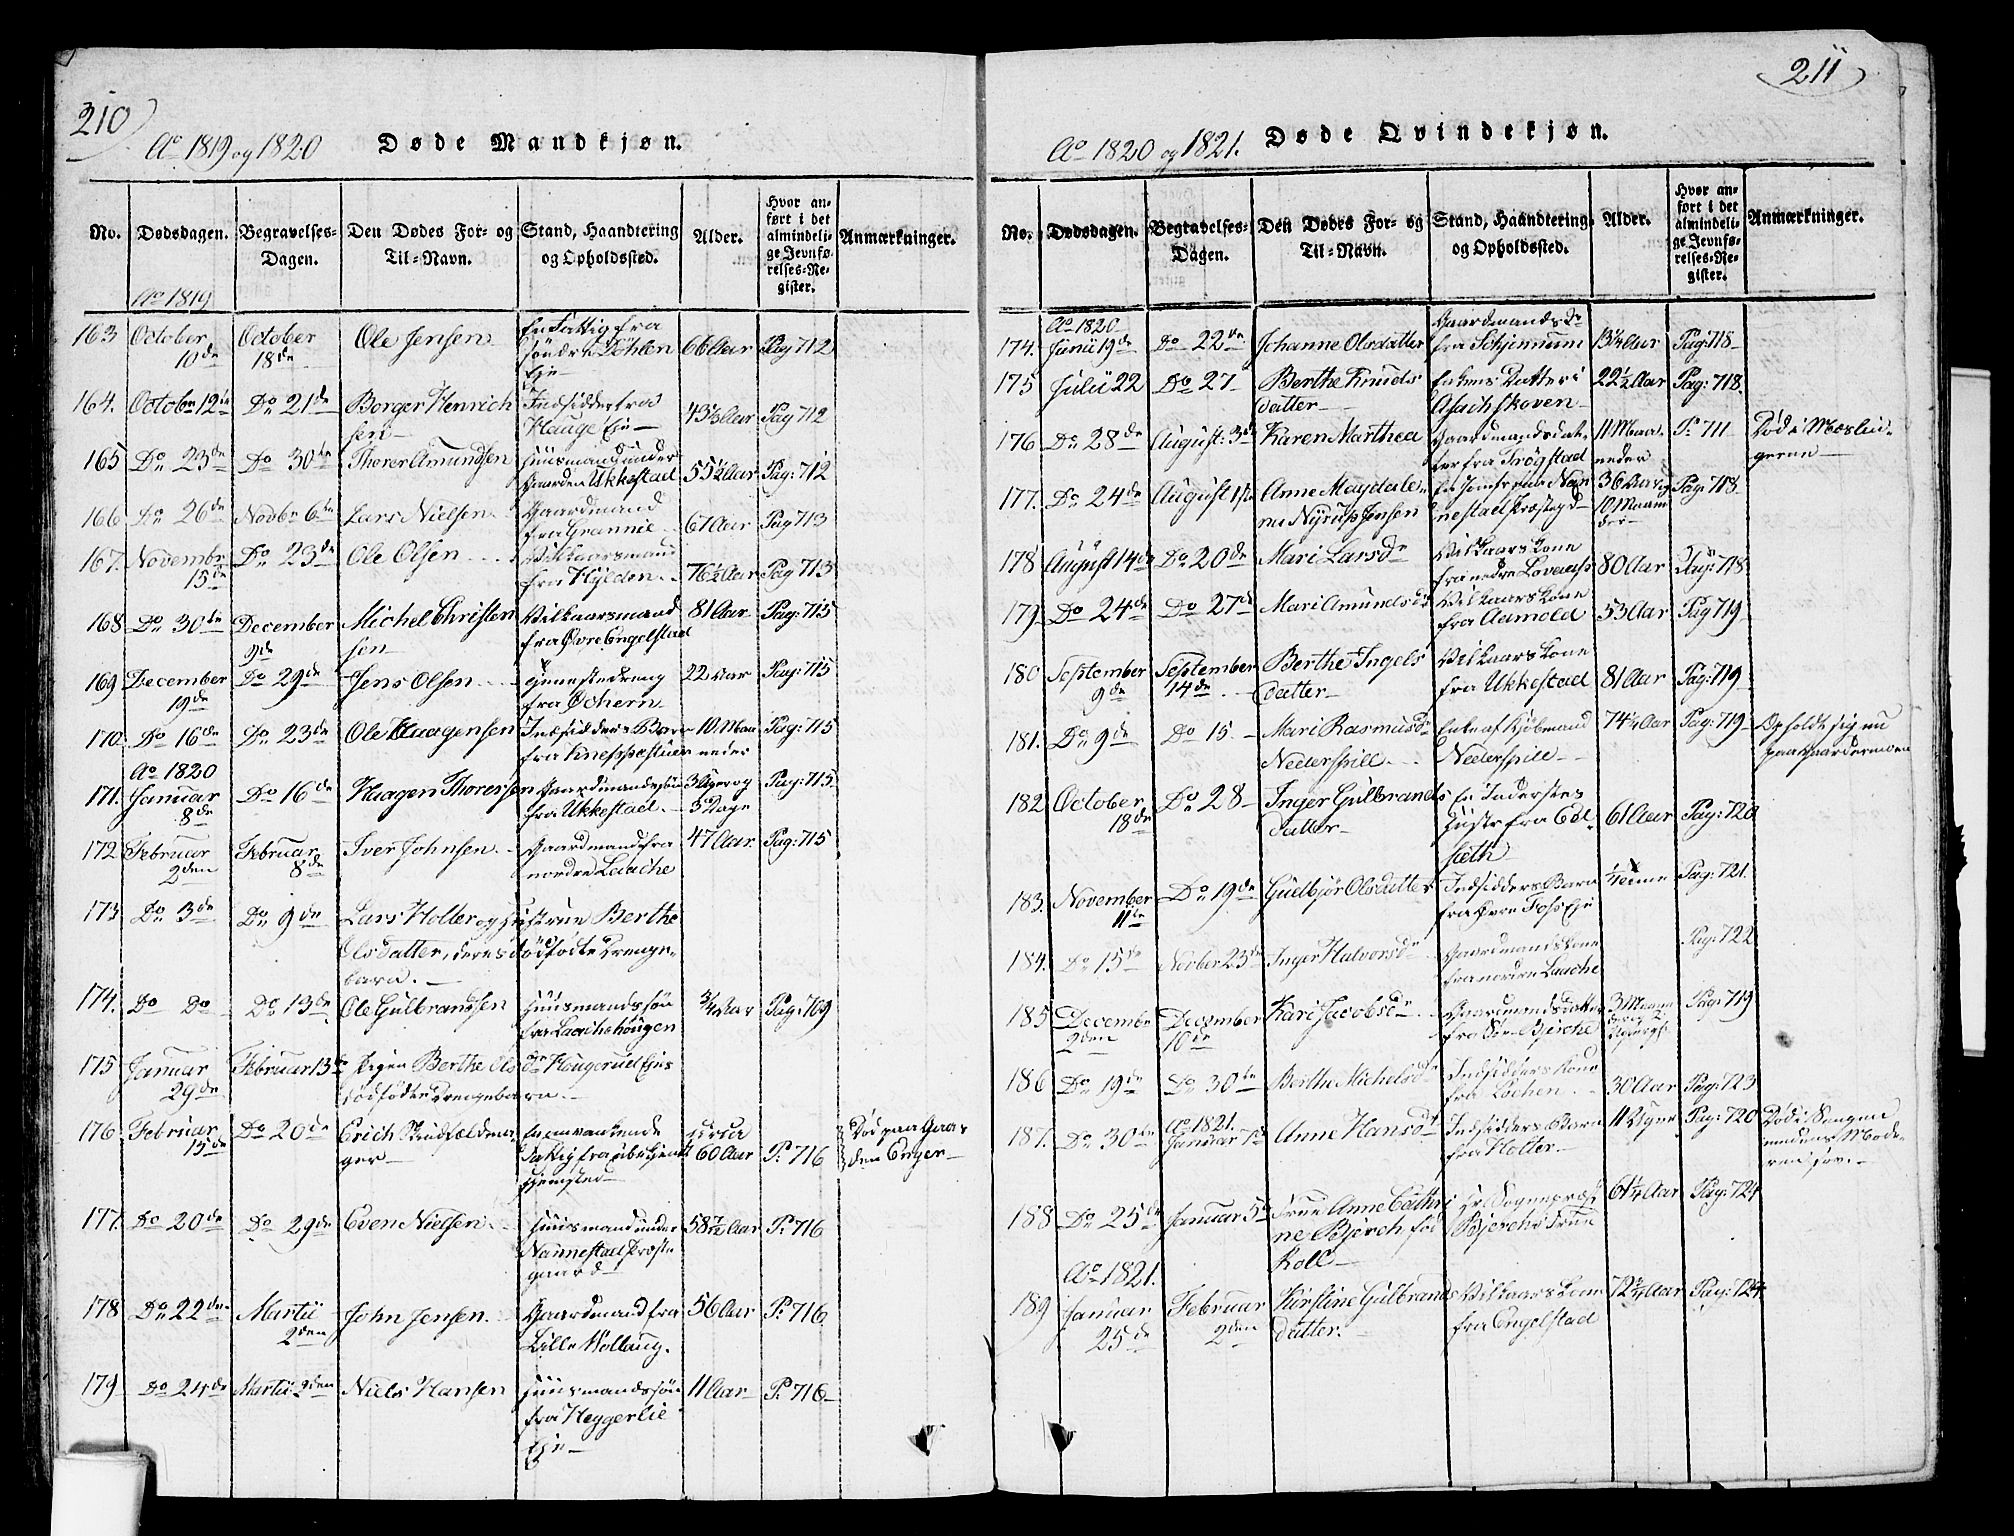 210
Ao 1819 og 1820 Døde Mandkjøn.
No. Dødsdagen. Begravelses-Dagen. Den Dødes For- og Til-Navn. Stand, Haandtering og Opholdssted. Alder. Hvor anført i det almindelige Jevnførelses-Register. Anmærkninger.
Ao 1819
163 October 10de October 18de Ole Jensen En Fattig fra søndre Löhlen Eje 66 Aar Pag 712
164. Octobr 12te Do 21de Borger Henrichsen Indsidder fra Hauge Eje 43 1/3 Aar Pag 712
165 Do 23de Do 30te Thorer Amundsen Huusmand under Gaarden Ukkestad 55 1/2 Aar Pag: 712
166 Do 26de Novbr 6te Lars Nielsen Gaardmand fra Grannie 67 Aar Pag 713
167. Novembr 15de Do 23de Ole Olsen Vilkaarsmand fra Hylden 76 1/2 Aar Pag 713
168 Do 30te December 9de Michel Christensen Vilkaarsmand fra Øvre Engelstad 81 Aar Pag: 715
169 December 19de Do 29de Jens Olsen fra Ochern 22 Aar Pag: 715
170. Do 16de Do 23de Ole Haagensen Indsidders Barn fra 10 Maaneder Pag: 715
Ao 1820
171. Januar 8de Do 16de Haagen Thoresen Gaardmandssøn fra Ukkestad 3 Uger og 3 Dage Pag: 715
172 Februar 2den Februar 8de Iver Johnsen Gaardmand fra nordre Laache 47 Aar Pag: 715
173 Do 3de Do 9de Lars Holter og Hustrue Berthe Olsdatter, deres dødfødte Drengebarn.
174. Do Do Do 13de Ole Gulbrandsen Huusmandssøn fra Laachehougen 3/4 Aar Pag: 709
175 Januar 29de Februar 13de Pigen Berthe Olsdr Hougeruds Ejes dødfødte Drengebarn.
176 Februar 15de Do 20de Erich En omvankende Fattig Hjemsted circa 60 Aar P: 716 Død paa Gaarden Enger
177. Do 20de Do 29de Even Nielsen Huusmand under Nannestad Præstegaard 58 7/12 Aar P: 716
178 Do 22de Martii 2den John Jensen Gaardmand fra Lille Wollaug. 56 Aar P: 716
179 Do 24de Martii 2den Niels Hansen Huusmandssøn fra Heggerlie Eje 11 Aar P: 716
211
Ao 1820 og 1821. Døde Qvindekjøn.
No. Dødsdagen. Begravelses-Dagen. Den Dødes For- og Til-Navn. Stand, Haandtering og Opholdssted. Alder. Hvor anført i det almindelige Jevnførelses-Register. Anmærkninger.
Ao 1820
174. Junii 19de Do 22de Johanne Olsdatter Gaardmands Dr fra Schjennum 13 1/4 Aar Pag: 718
175 Julii 22 Do 27 Berthe Knudsdatter Enkens Datter i Asachskoven 22 1/2 Aar Pag: 718.
176 Do 28de August: 3de Karen Marthea Gaardmandsdatter fra Trøgstad 11 Maaneder P: 711 Død i Meslingerne
177. Do 24de August 1ste Anne Magdalene Nyrups Jensen En Jomfrue Nannestad Præstegd 36 Aar og 10 Maaneder Pag: 718
178 August 14de Do 20de Mari Larsdr Vilkaarskone fra nedre Lovaas 80 Aar Pag: 718
179. Do 24de Do 27de Mari Amundsdr Vilkaarskone fra Aamold 53 Aar Pag 719
180 September 9de September 14de Berthe Ingelsdatter Vilkaarskone fra Ukkestad 81 Aar Pag: 719
181. Do 9de Do 15 Mari Rasmusdr Nederspill Enke af Kjøbmand Nederspill 74 1/4 Aar Pag: 719 Opholdt sig nu paa Gardermoen
182 October 18de Do 28 Inger Gulbrandsdatter En Inderstes Hustr fra Edlsæth 61 Aar Pag: 720
183. November 11te Do 19de Guelbjør Olsdatter Indsidders Barn fra Øvre Foss Eje 1/4 Time Pag: 721.
184. Do 15de Novber 23de Inger Halvorsdr Gaardmandskone fra nordre Laache Pag: 722
185 Decembr 2den December 10de Kari Jacobsdr Gaardmandsdatter fra Bjerche 3 Maaneder 2 Uger Pag: 719
186 Do 19de Do 30te Berthe Michelsdr Indsidders Kone fra Lochen 30 Aar Pag: 723
187. Do 30te Ao 1821. Januar 7de Anne Hansdr Indsidders Barn fra Holter 11 Uger Pag: 720 Død i Sengen medens Moderen sov.
188 Do 25de Januar 5te Frue Anne Cathrine Bjerch fød Koll Hr. Sognepræst Bjerchs Frue 61 1/4 Aar Pag: 724
Ao 1821.
189 Januar 25de Februar 2den Kirstine Gulbrandsdatter. Vilkaarskone fra Engelstad 72 3/4 Aar Pag: 724